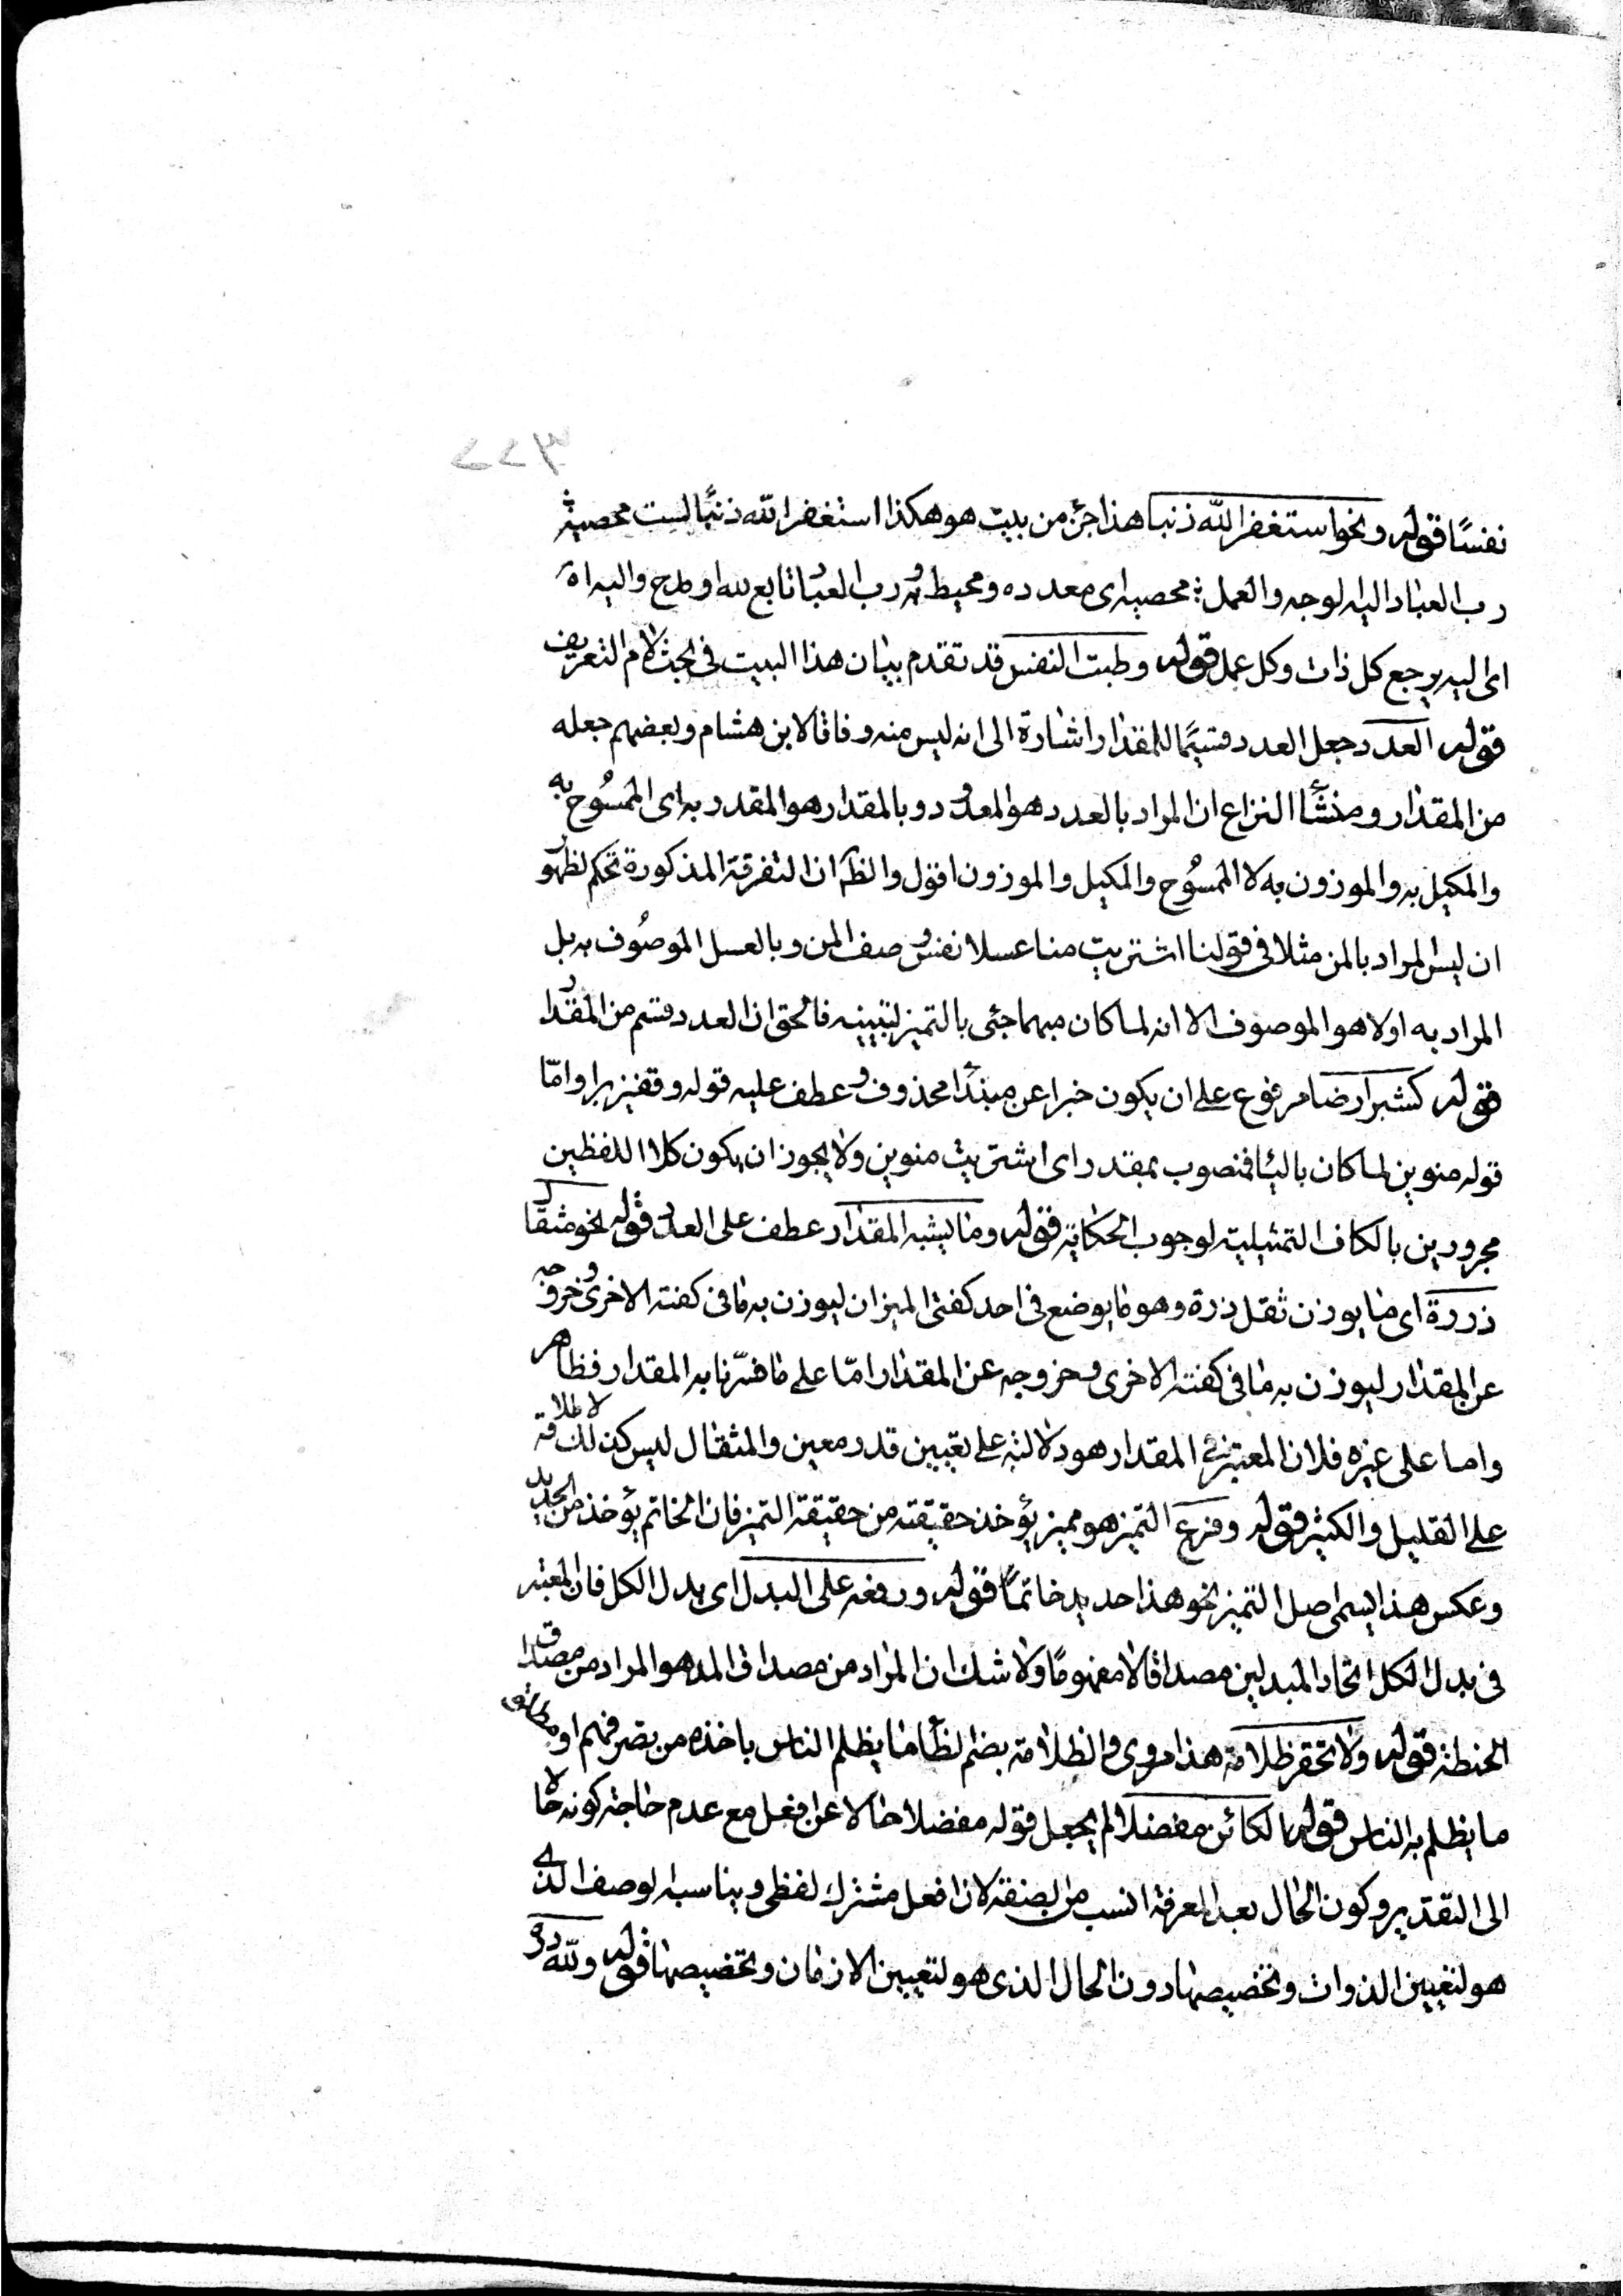 نفسًا قوله ونحو استغفر الله ذنبا هذا جزء من بيت هو هكذا استغفر الله ذنبًا لست محصيه
رب العباد اليه لوجه والعمل ؛ محصيه اى معدده ومحيط به رب العباد تابع لله او مدح واليه اه
اى اليه يرجع كل ذات وكل عمل قوله وطبت النفس قد تقدم بيان هذا البيت فى بحث لام التعريف
قوله العدد جعل العدد قسيمًا للمقدار اشارة الى انه ليس منه وفاقا لابن هشام وبعضهم جعله
من المقدار ومنشأ النزاع ان المراد بالعدد هو المعدود وبالمقدار هو المقدر به اى الممسُوح به
والمكيل به والموزون به لا الممسُوح والمكيل والموزون اقول والظ ان التفرقة المذكورة تحكم لظهور
ان ليس المراد بالمن مثلا فى قولنا اشتريت منا عسلا نفس وصف المن وبالعسل الموصُوف به بل
المراد به اولا هو الموصوف الا انه لما كان مبهما جئى بالتميز لتبيينه فالحق ان العدد قسم من المقدار
قوله كشبر ارضا مرفوع على ان يكون خبرا عن مبتدأ محذوف وعطف عليه قوله وقفيز برا وامّا
قوله منوين لما كان باليا فمنصوب بمقدر اى اشتريت منوين ولا يجوز ان يكون كلا اللفظين
مجرورين بالكاف التمثيلية لوجوب الحكاية قوله وما يشبه المقدار عطف على العدد قوله نحو مثقال
ذررة اى ما يوزن ثقل ذرة وهو ما يوضع فى احد كفتى الميزان ليوزن به ما فى كفته الاخرى وخروجه
عن المقدار ليوزن به ما فى كفته الاخرى وخروجه عن المقدار امّا على ما فسّرنا به المقدار فظاهر
واما على غيره فلان المعتبر فى المقدار هو دلالته على تعيين قدر معين والمثقال ليس كذلك لاطلاقه
على القليل والكثير قوله وفرع التميز هو مميز يؤخذ حقيقته من حقيقة التميز فان الخاتم يؤخذ من الحديد
وعكس هذا يسمى اصل التميز نحو هذا حديد خاتمًا قوله ورفعه على البدل اى بدل الكل فان المعتبر
فى بدل الكل اتحاد المبدلين مصداقا لا مفهومًا ولا شك ان المراد من مصداق المد هو المراد من مصداق
الحنطة قوله ولا تحقر ظلامة هذا مروى والظلامة بضم الظا ما يظلم الناس باخذه من بصرفهم او
ما يظلم به الناس قوله الكائن مفضلا لم يجعل قوله مفضلا حالا عن افعل مع عدم حاجة كونه حالا
الى التقدير وكون الحال بعد المعرفة انسب من الصفة لان افعل مشترك لفظى ويناسبه الوصف الذى
هو لتعيين الذوات وتخصيصها دون الحال الذى هو لتعيين الازمان وتخصيصها قوله ولله در